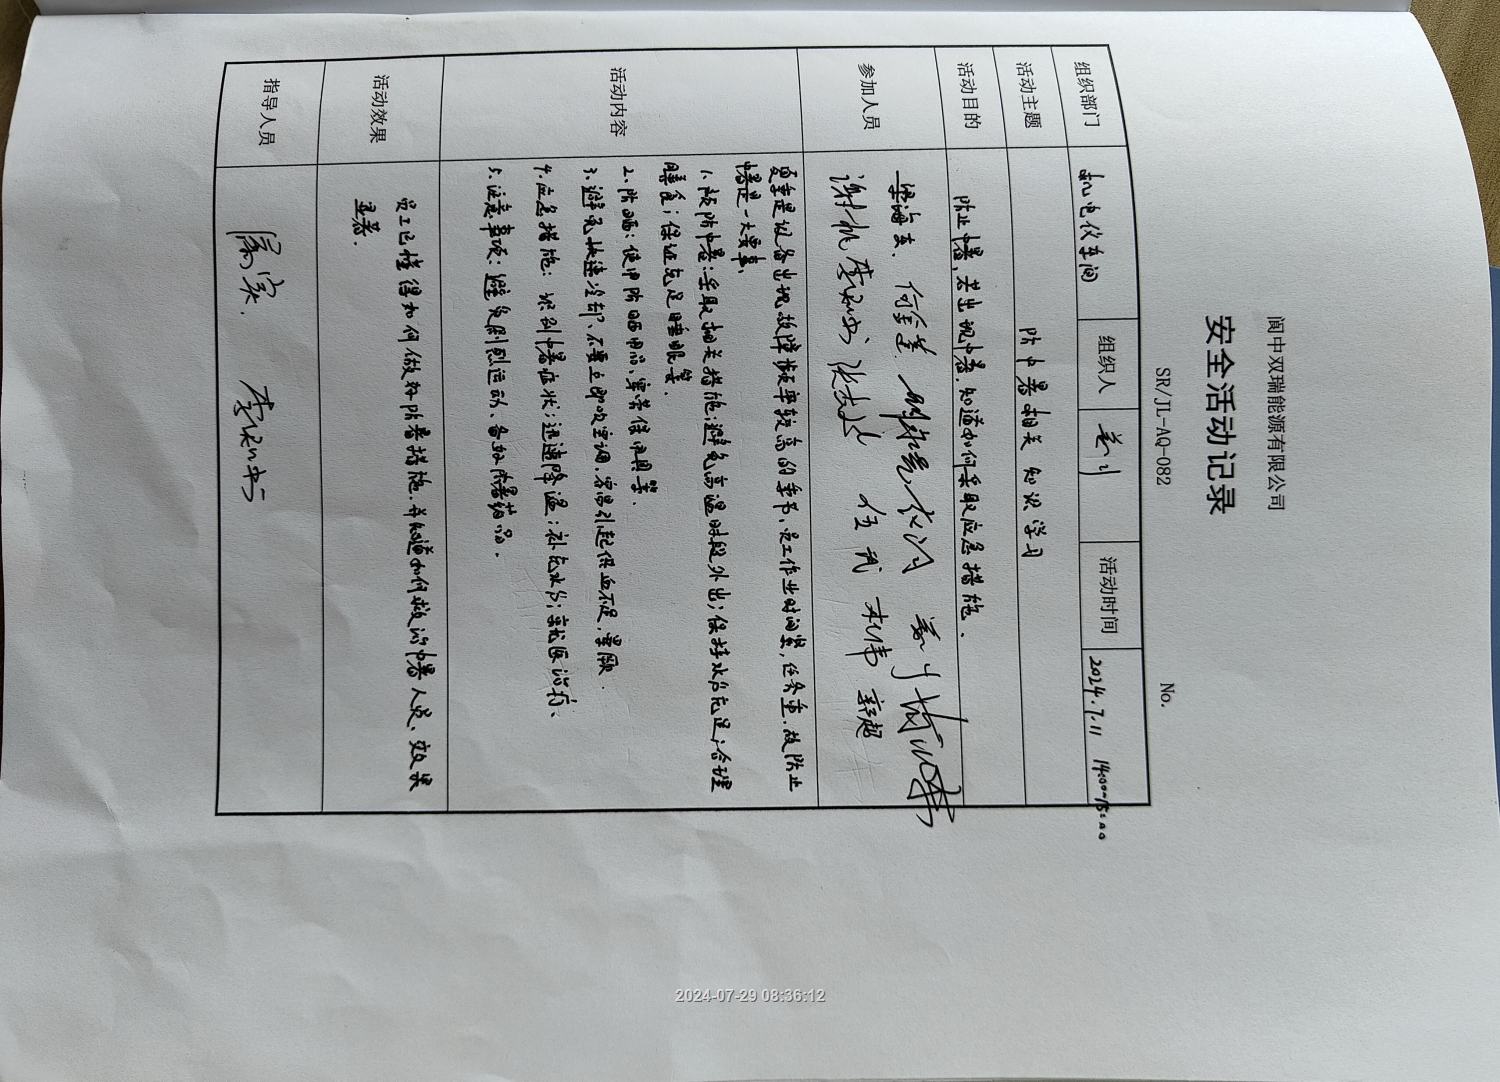 阆中双瑞能源有限公司
安全活动记录
SR/JL-AQ-082
No.
组织部门
机电仪车间
组织人
活动时间
2024.7.11 14:00-15:00
活动主题
防中暑相关知识学习
活动目的
防止中暑,若出现中暑,知道如何采取应急措施.
参加人员
梁海东.
任武
杜伟
活动内容
夏季是设备出现故障频率较高的季节、员工作业时间紧,任务重.故防止
中暑是一大要事.
1.预防中暑:采取相关措施;避免高温时段外出;保持水分充足;合理
膳食;保证充足睡眠等.
2.防晒:使用防晒用品、穿劳保用具等.
3.避免快速冷却、不要立即吹空调.容易引起供血不足,晕厥.
4.应急措施:识别中暑症状;迅速降温;补充水分;就医治疗、
5.注意事项:避免剧烈运动、备好防暑药品.
活动效果
员工已懂得如何做好防暑措施.并知道如何救治中暑人员、效果
显著.
指导人员
2024-07-29 08:36:12